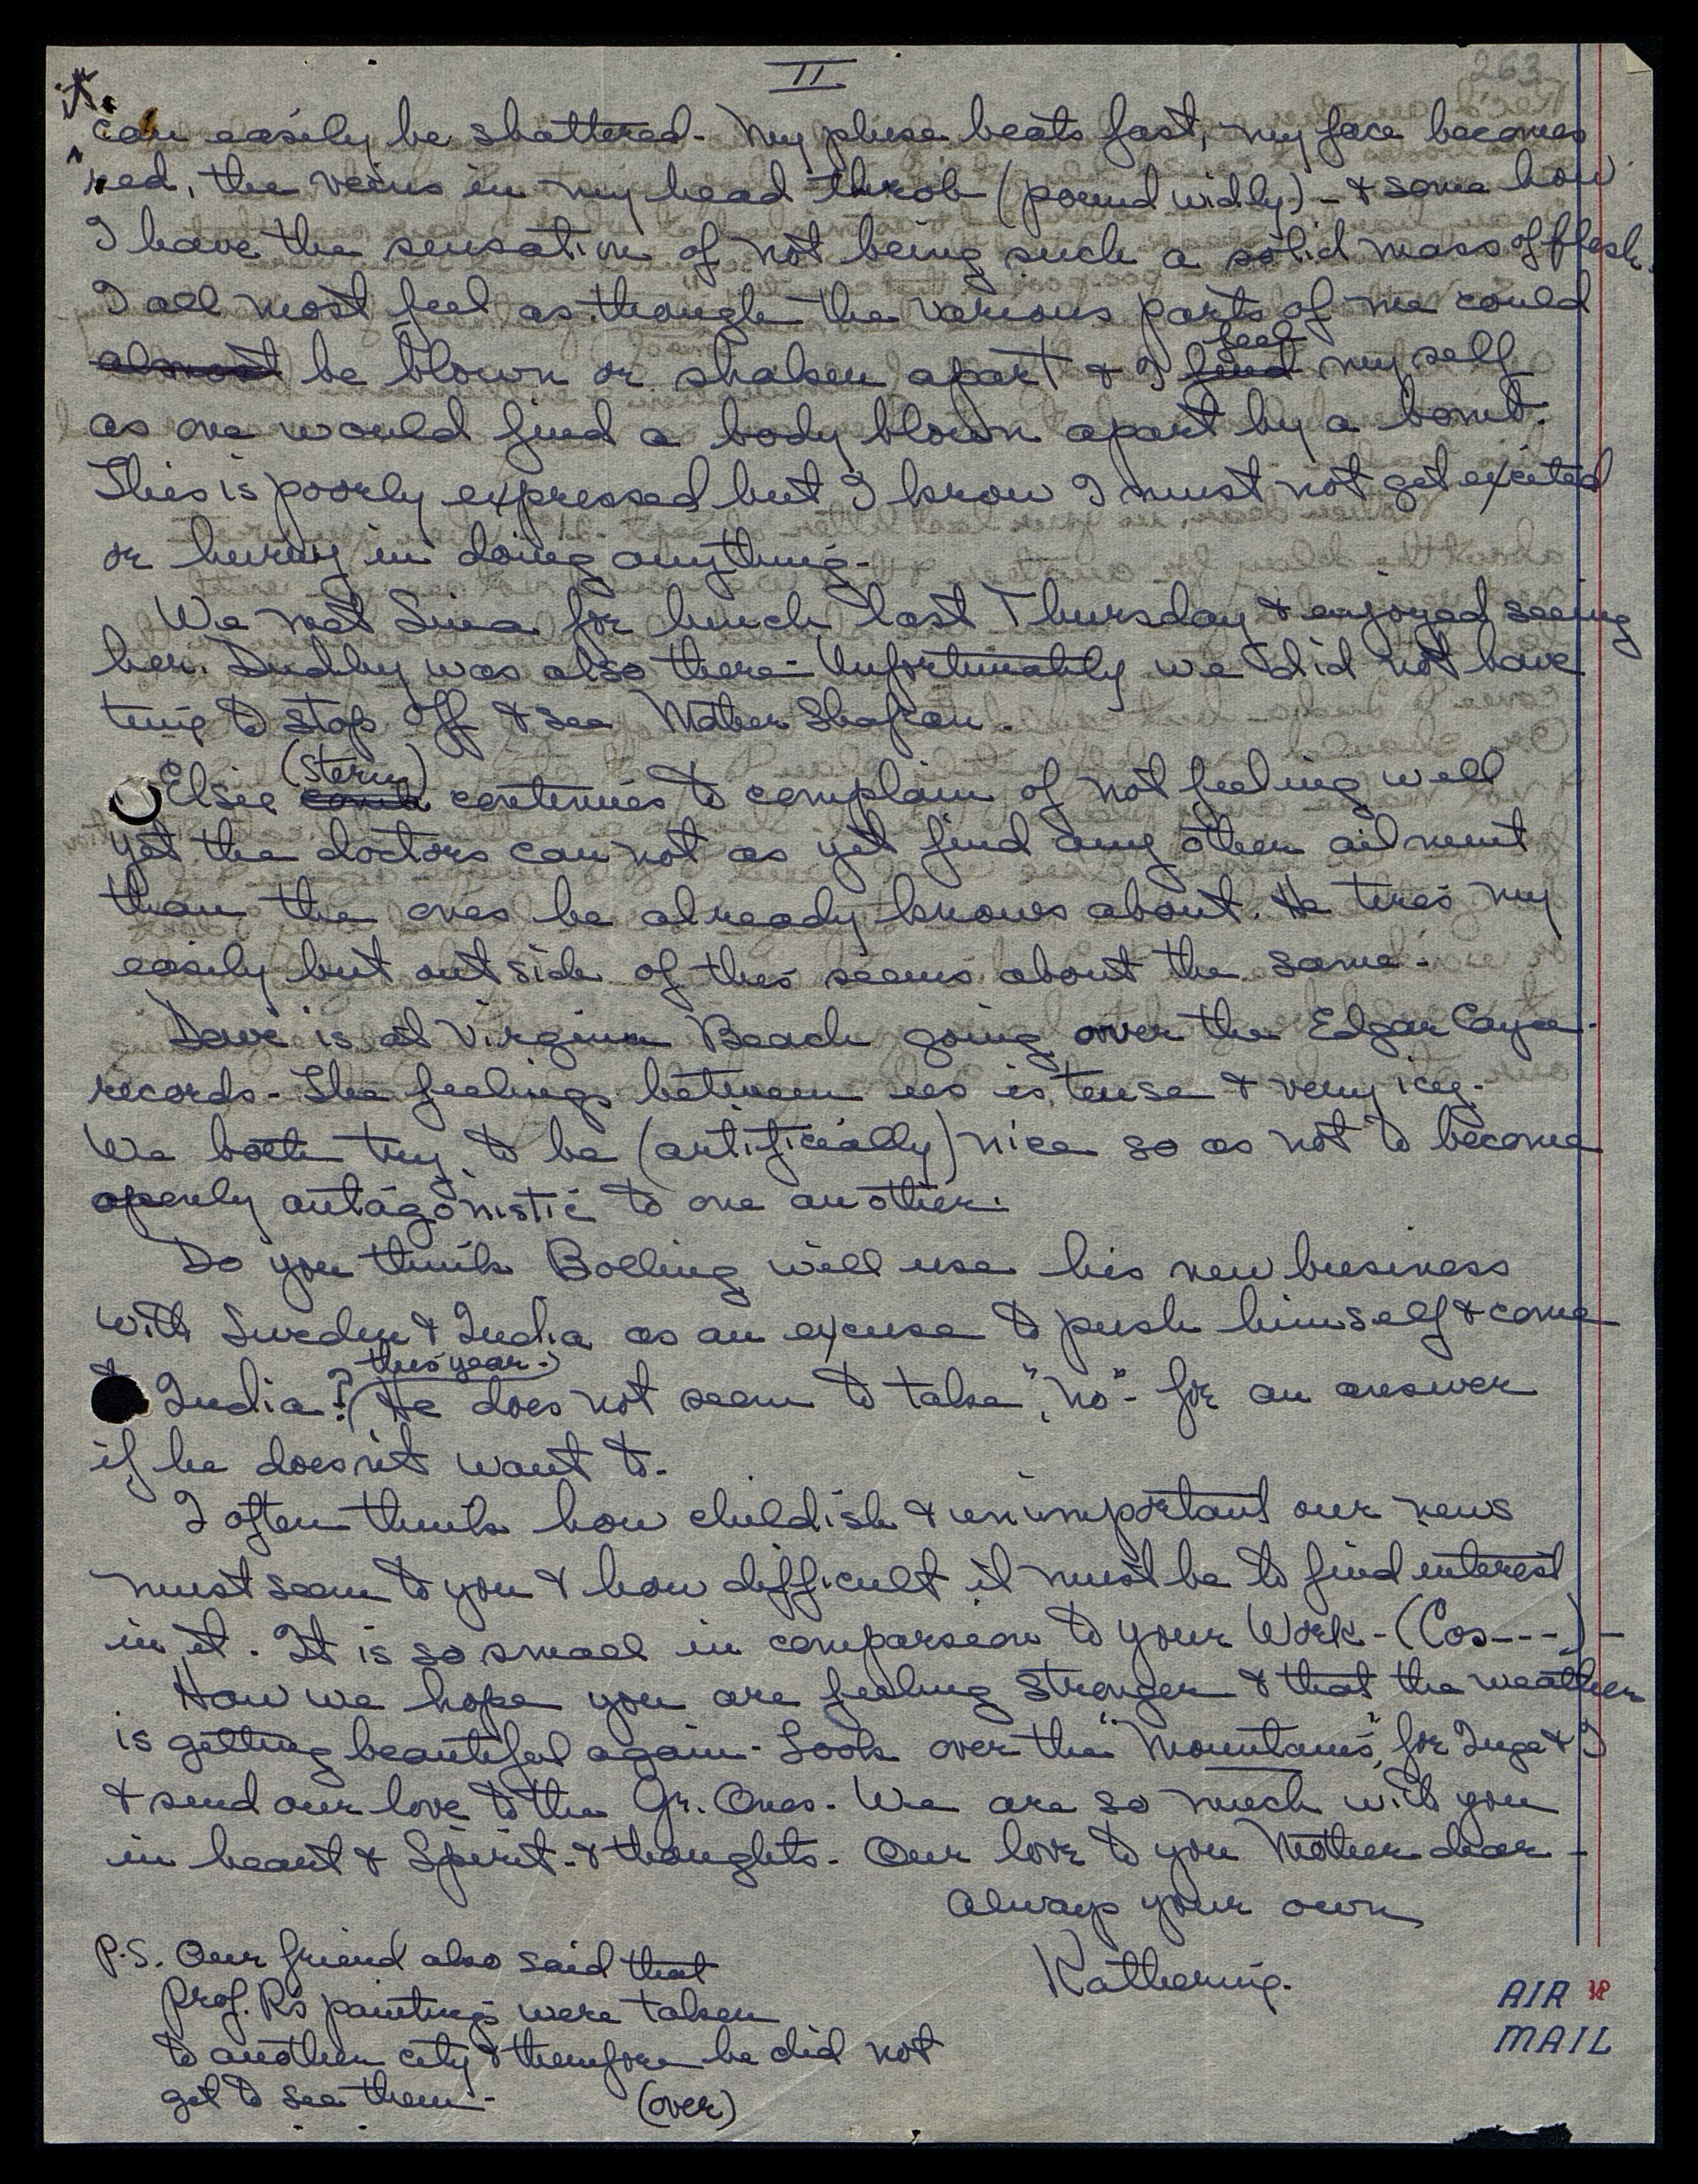 II
263
it.
can easily be shattered - My pluse beats fast, my face becomes
red, the veins in my head throb (pound widly) - & some how
I have the sensation of not being such a solid mass of flesh.
I all most feel as though the various parts of me could
almost be blown or shaken apart & I find feel my self
as one would find a body blown apart by a bomb.
This is poorly expressed but I know I must not get excited
or hurry in doing anything.
We met Sina for lunch last Thursday & enjoyed seeing
her. Dudley was also there - Unfortunately we did not have
time to stop off & see Mother Shafran.
Elsie (Stern) continues to complain of not feeling well
yet the doctors can not as yet find any other ailment
than the ones he already knows about. He tires my
easily but out side of this seems about the same.
Dave is at Virginia Beach going over the Edgar Cayce
records - The feelings between us is tense & very icy.
We both try to be (artificially) nice so as not to become
openly antagonistic to one another.
Do you think Bolling will use his new business
with Sweden & India as an excuse to push himself & come
to India? (this year.) He does not seem to take "no" - for an answer
if he doesn't want to.
I often think how childish & unimportant our news
must seem to you & how difficult it must be to find interest
in it. It is so small in comparsion to your Work - (Cos---) -
How we hope you are feeling stronger & that the weather
is getting beautiful again - Look over the "Mountains" for Inge & I
& send our love to the Gr. Ones. We are so much with you
in heart & Spirit - & thoughts. Our love to you Mother dear -
Always your own
Katherine.
P.S. Our friend also said that
Prof. R's paintings were taken
to another city & therefore he did not
get to see them -
(over)
AIR
MAIL